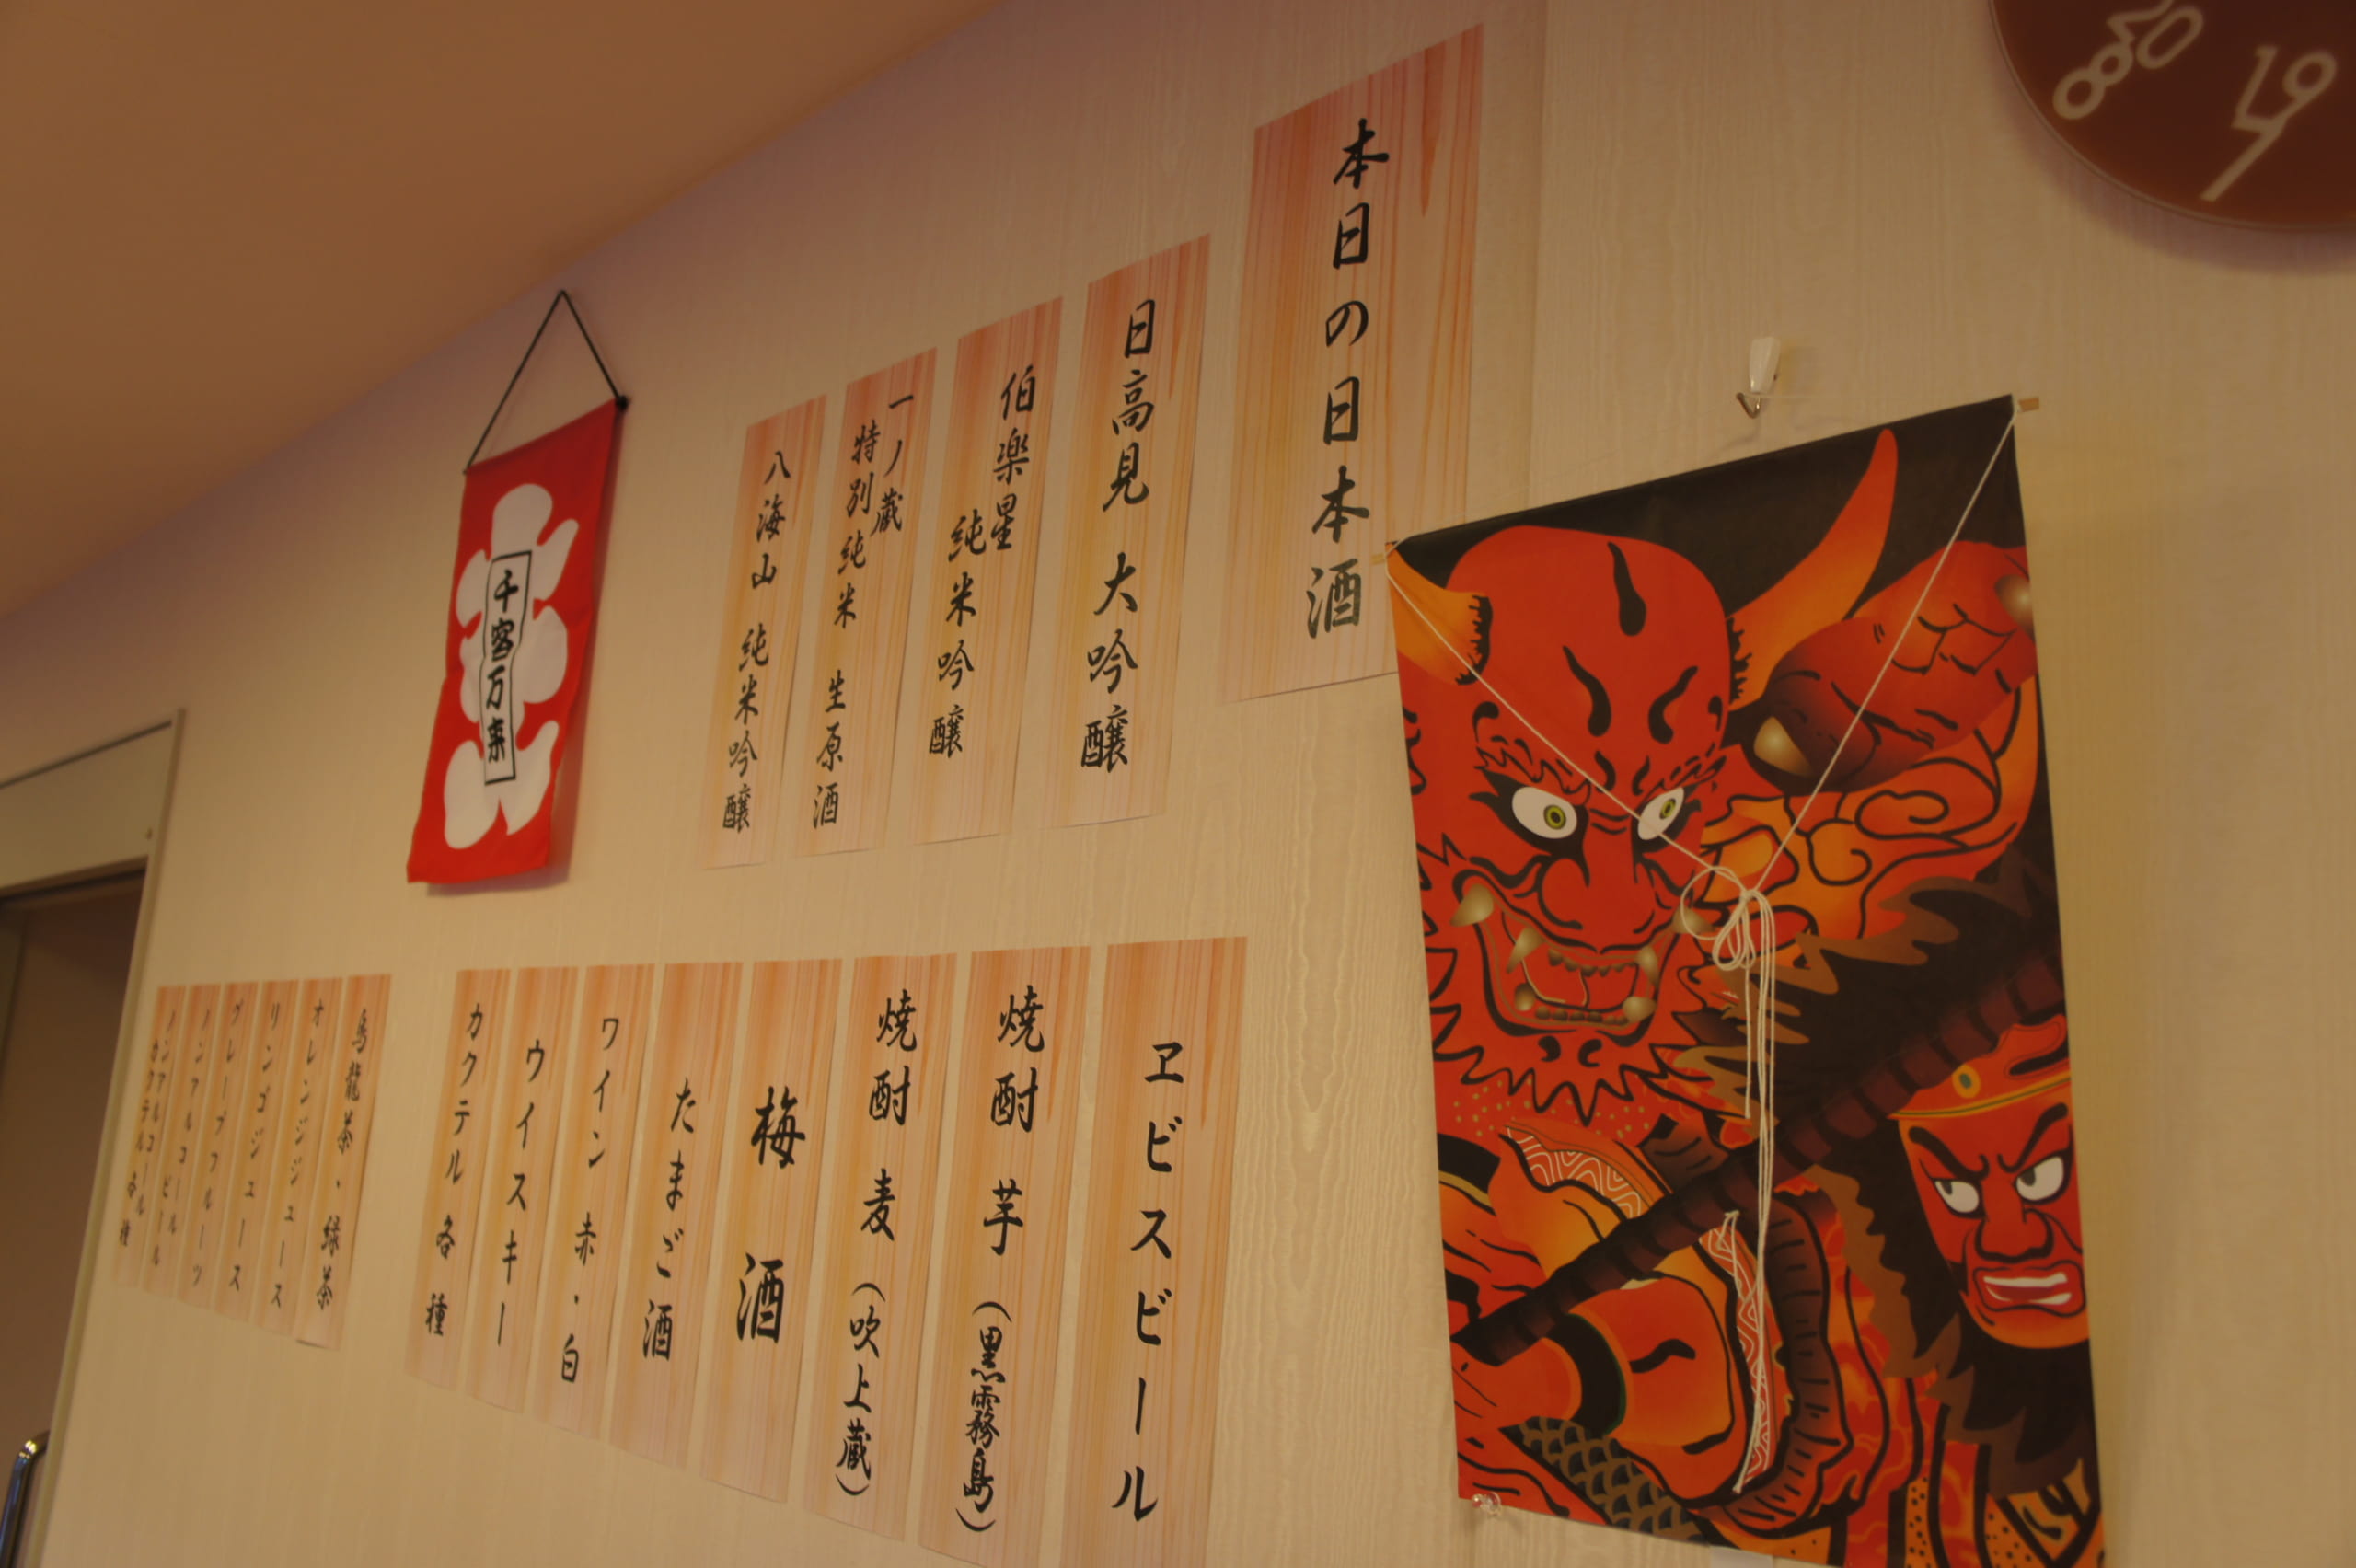 本日の日本酒
日高見 大吟醸
伯楽星
純米吟醸
一ノ蔵
特別純米 生原酒
八海山 純米吟醸
千客万来
ヱビスビール
焼酎 芋 (黒霧島)
焼酎 麦 (吹上蔵)
梅酒
たまご酒
ワイン 赤・白
ウイスキー
カクテル 各種
烏龍茶・緑茶
オレンジジュース
リンゴジュース
グレープフルーツ
ノンアルコールビール
ノンアルコール
カクテル 各種